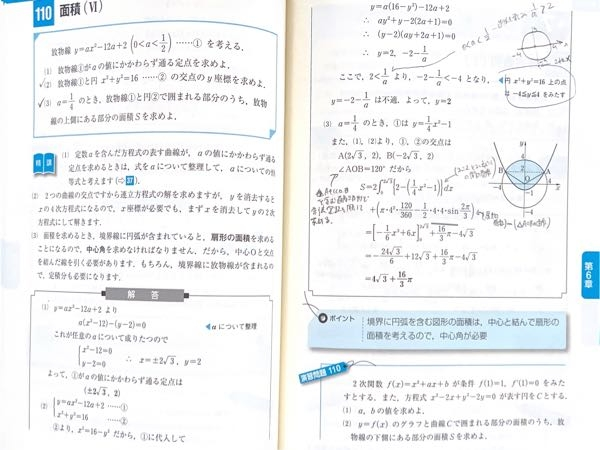 110 面積(Ⅵ)
放物線 y=ax²-12a+2 (0<a<1/2) ……① を考える.
(1) 放物線①がaの値にかかわらず通る定点を求めよ.
(2) 放物線①と円 x²+y²=16 ……② の交点のy座標を求めよ.
(3) a=1/4 のとき, 放物線①と円②で囲まれる部分のうち, 放物
線の上側にある部分の面積Sを求めよ.
精講
(1) 定数aを含んだ方程式の表す曲線が, aの値にかかわらず通る
定点を求めるときは, 式をaについて整理して, aについての恒
等式と考えます (⇨37).
(2) 2つの曲線の交点ですから連立方程式の解を求めますが, yを消去すると
xの4次方程式になるので, x座標が必要でも, まずxを消去してyの2次
方程式にして解きます.
(3) 面積を求めるとき, 境界線に円弧が含まれていると, 扇形の面積を求める
ことになるので, 中心角を求めなければなりません. だから, 中心Oと交点
を結んだ線を引く必要があります. もちろん, 境界線に放物線が含まれるの
で, 定積分も必要になります.
解答
(1) y=ax²-12a+2 より
a(x²-12)-(y-2)=0
◀aについて整理
これが任意のaについて成りたつので
{x²-12=0
y-2=0 ∴ x=±2√3, y=2
よって, ①がaの値にかかわらず通る定点は
(±2√3, 2)
(2) {y=ax²-12a+2 ……①
x²+y²=16 ……②
②より, x²=16-y² だから, ①に代入して
y=a(16-y²)-12a+2
∴ ay²+y-2(2a+1)=0
∴ (y-2)(ay+2a+1)=0
∴ y=2, -2-1/a
ここで, 2<1/a より, -2-1/a<-4 となり,
◀円 x²+y²=16 上の点
は -4≦y≦4 をみたす
y=-2-1/a は不適. よって, y=2
(3) a=1/4 のとき, ①は y=1/4x²-1
また, (1), (2)より, ①, ②の交点は
A(2√3, 2), B(-2√3, 2)
∠AOB=120° だから
S=2∫₀^{2√3}{2-(1/4x²-1)}dx
+(π・4²・120/360-1/2・4・4・sin2π/3)
=[-1/6x³+6x]₀^{2√3}+16/3π-4√3
=-24√3/6+12√3+16/3π-4√3
=4√3+16/3π
ポイント
境界に円弧を含む図形の面積は, 中心と結んで扇形の
面積を考えるので, 中心角が必要
第6章
演習問題 110
2次関数 f(x)=x²+ax+b が条件 f(1)=1, f'(1)=0 をみた
すとする. また, 方程式 x²-2x+y²-2y=0 が表す円をCとする.
(1) a, bの値を求めよ.
(2) y=f(x) のグラフと曲線Cで囲まれる部分の面積のうち, 放物
線の下側にある部分の面積Sを求めよ.